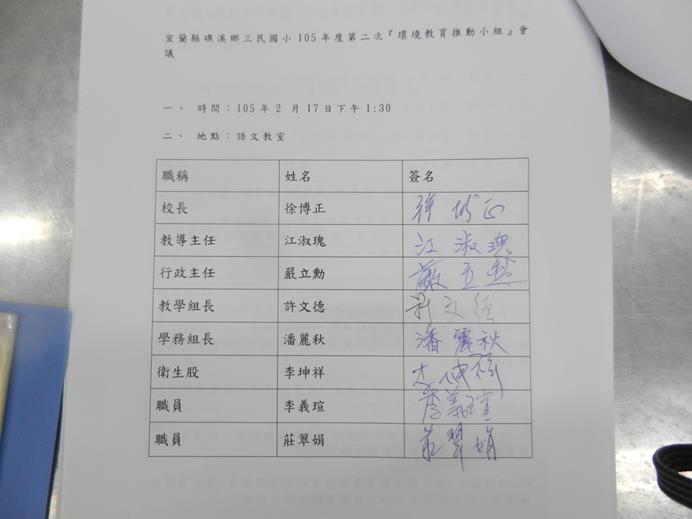 宜蘭縣礁溪鄉三民國小105年度第二次『環境教育推動小組』會
議
一、 時間：105年2 月17日下午1:30
二、 地點：語文教室
職稱 姓名 簽名
校長 徐博正 徐博正
教導主任 江淑瑰 江淑瑰
行政主任 嚴立勳 嚴立勳
教學組長 許文德 許文德
學務組長 潘麗秋 潘麗秋
衛生股 李坤祥 李坤祥
職員 李義瑄 李義瑄
職員 莊翠娟 莊翠娟